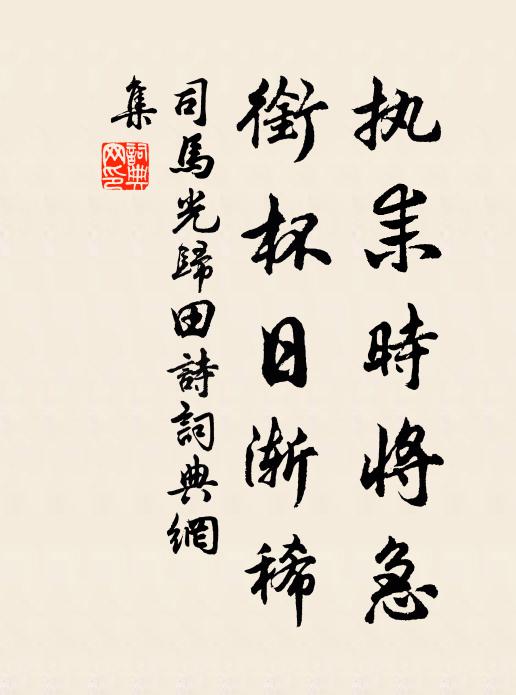 执耒時將急
銜杯日漸稀
司馬光歸田詩詞典網
集
詞典
网印